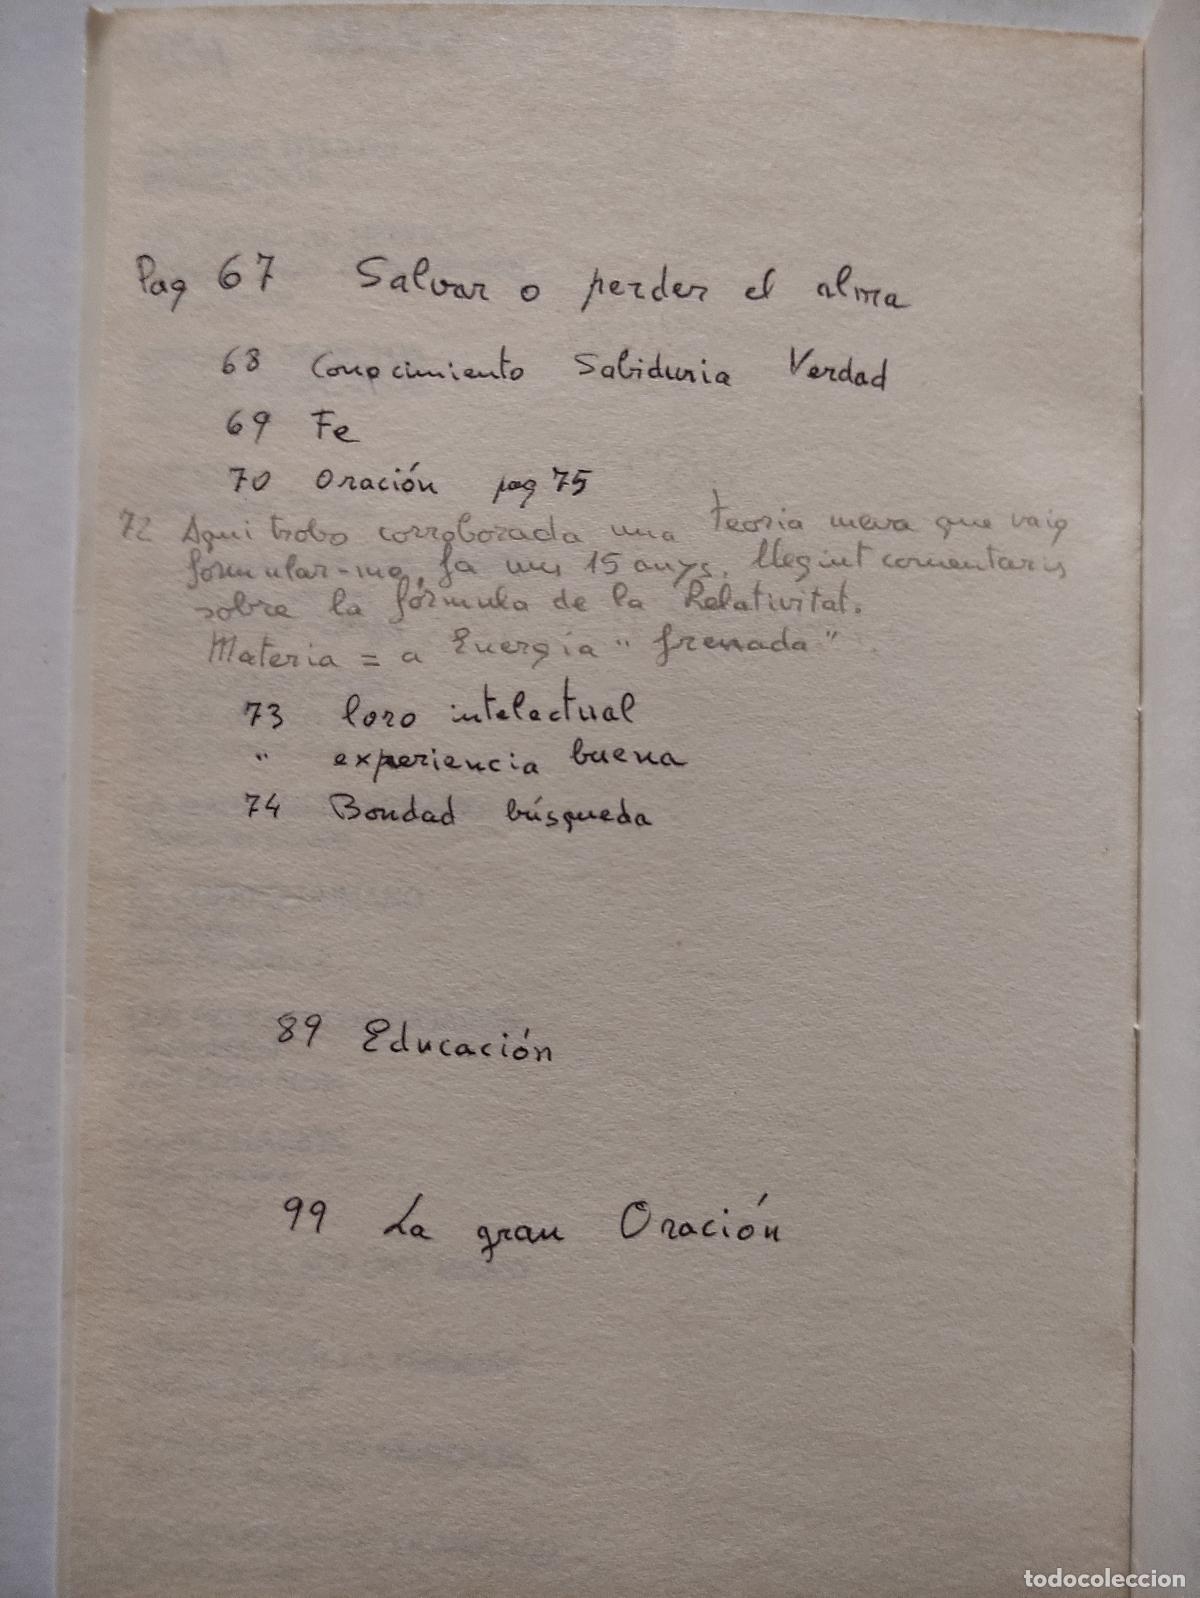 Pag 67 Salvar o perder el alma
68 Conocimiento Sabiduria Verdad
69 Fe
70 Oración pag 75
72 Aqui trobo corroborada una Teoria meva que vaig
formular-me, fa uns 15 anys, llegint comentaris
sobre la fórmula de la Relativitat.
Materia = a Energía "frenada"
73 loro intelectual
" experiencia buena
74 Bondad búsqueda
89 Educación
99 La gran Oración
todocoleccion